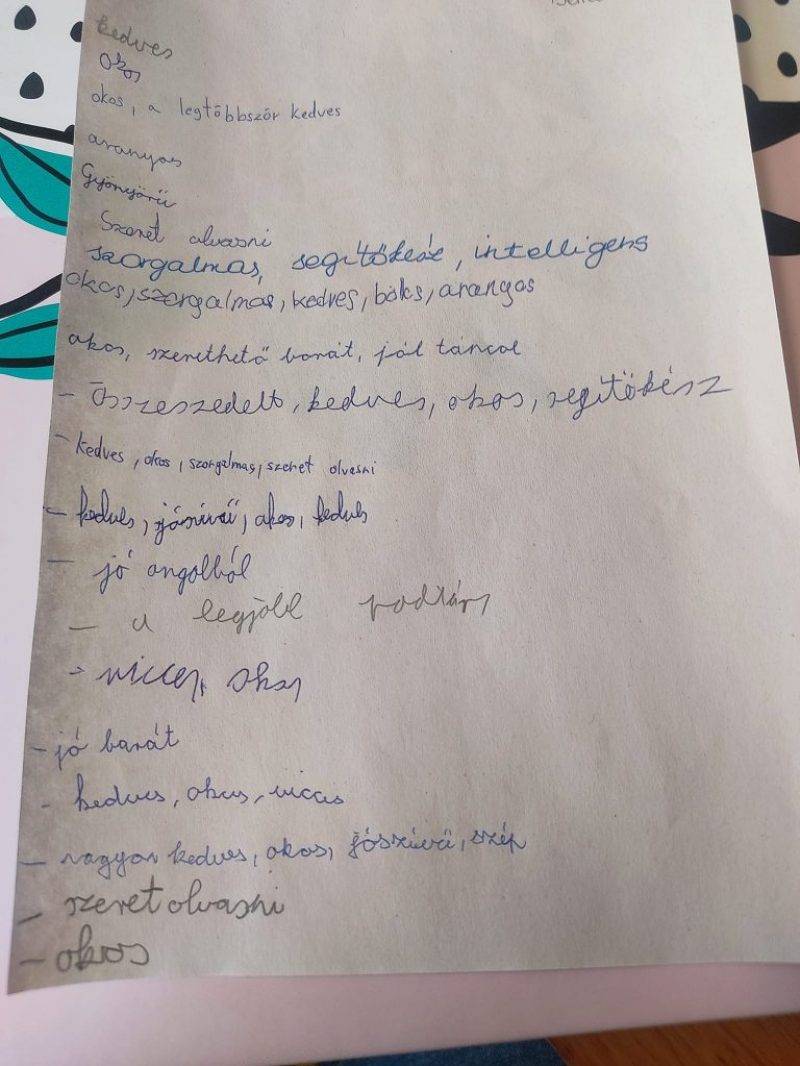 kedves
Okos
okos, a legtöbbször kedves
aranyos
Gyönyörű
Szeret olvasni
szorgalmas, segítőkész, intelligens
okos, szorgalmas, kedves, bölcs, aranyos
okos, szerethető barát, jól táncol
- Összeszedett, kedves, okos, segítőkész
- kedves, okos, szorgalmas, szeret olvasni
- kedves, jószívű, okos, kedves
- jó angolból
- a legjobb padtárs
- vicces, okos
- jó barát
- kedves, okos, vicces
- nagyon kedves, okos, jószívű, szép
- szeret olvasni
- okos